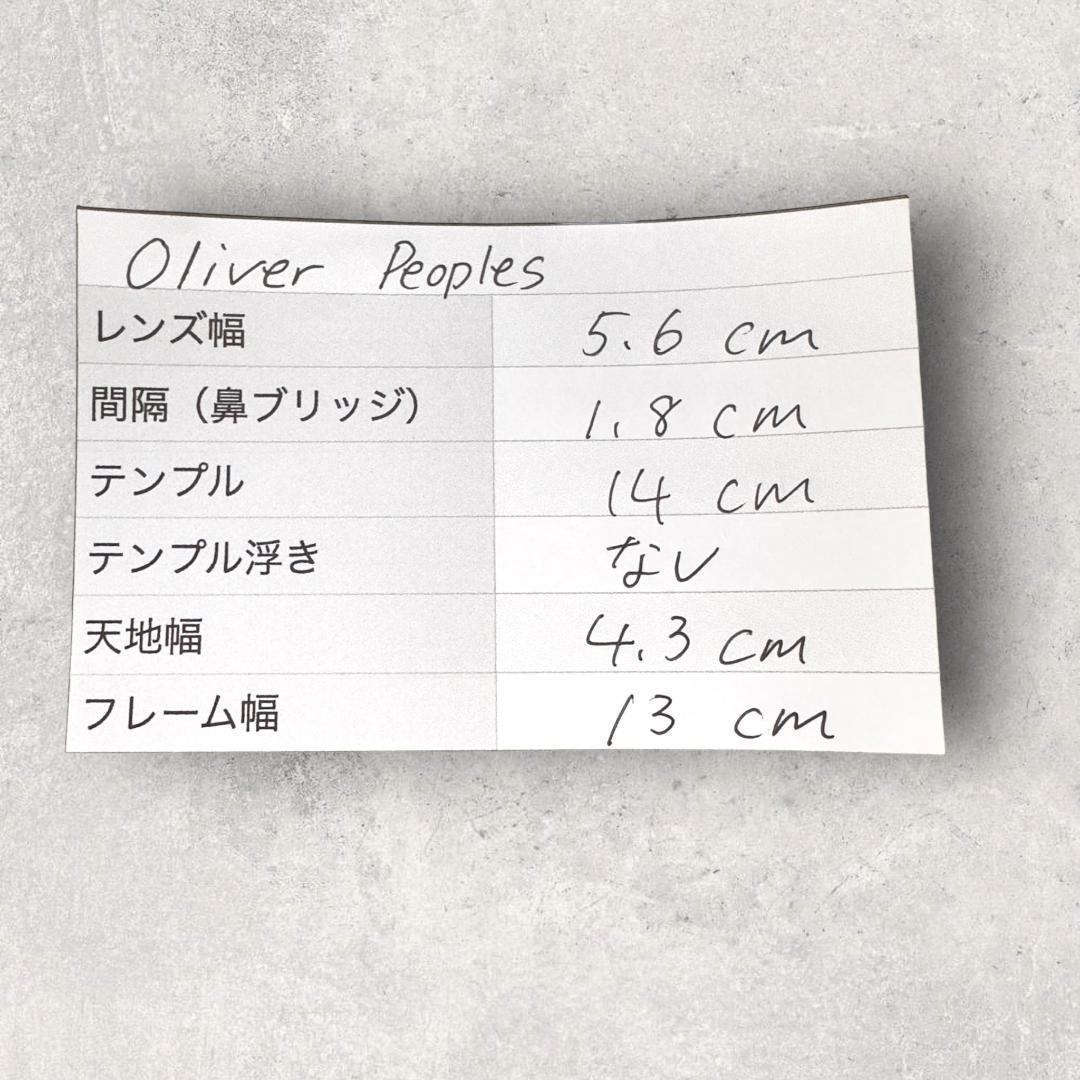 Oliver Peoples
レンズ幅 5.6 cm
間隔（鼻ブリッジ） 1.8 cm
テンプル 14 cm
テンプル浮き なし
天地幅 4.3 cm
フレーム幅 13 cm